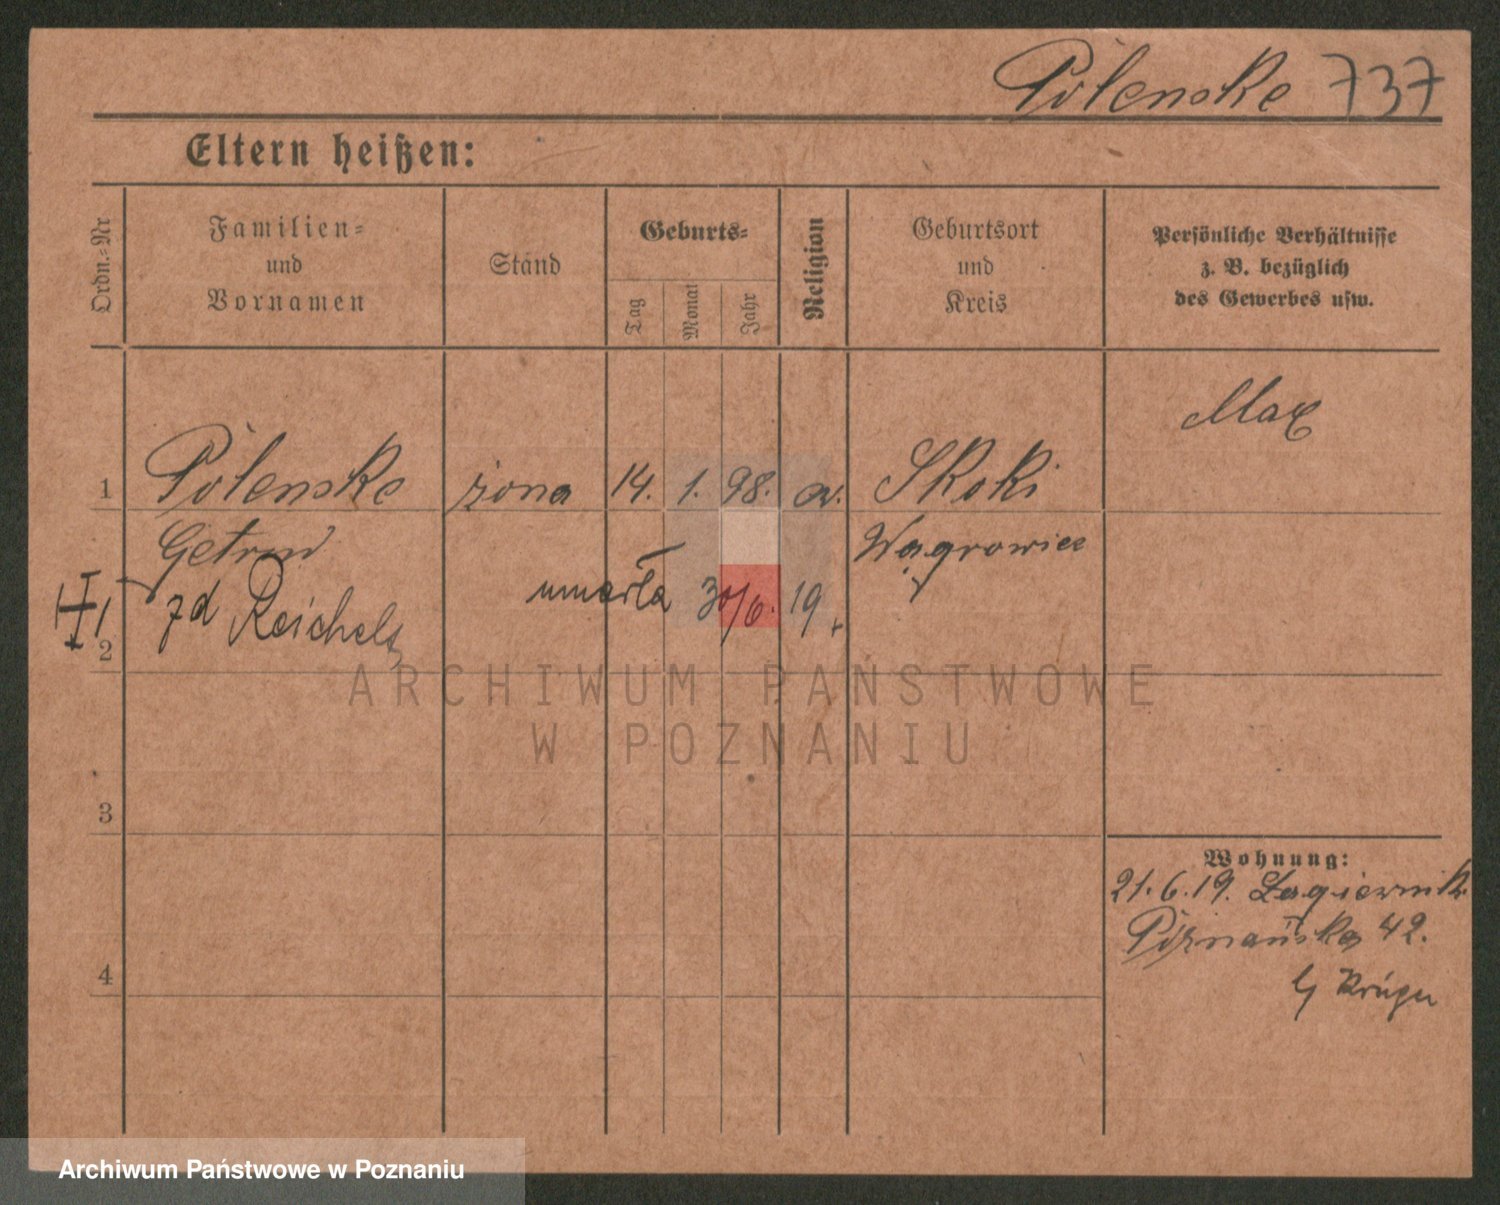 Polenske 737
Eltern heißen:
Ordn.-Nr
Familien-
und
Vornamen
Stand
Geburts-
Tag
Monat
Jahr
Religion
Geburtsort
und
Kreis
Persönliche Verhältnisse
z. B. bezüglich
des Gewerbes usw.
Max
1 Polenske żona 14. 1. 98. ew. Skoki
Gertrud Wągrowiec
zd Reichelt umarła 30/6. 19.
2
3
4
Wohnung:
21.6.19. Łagiewnik
Poznańska 42.
Krüger
ARCHIWUM PAŃSTWOWE
W POZNANIU
Archiwum Państwowe w Poznaniu